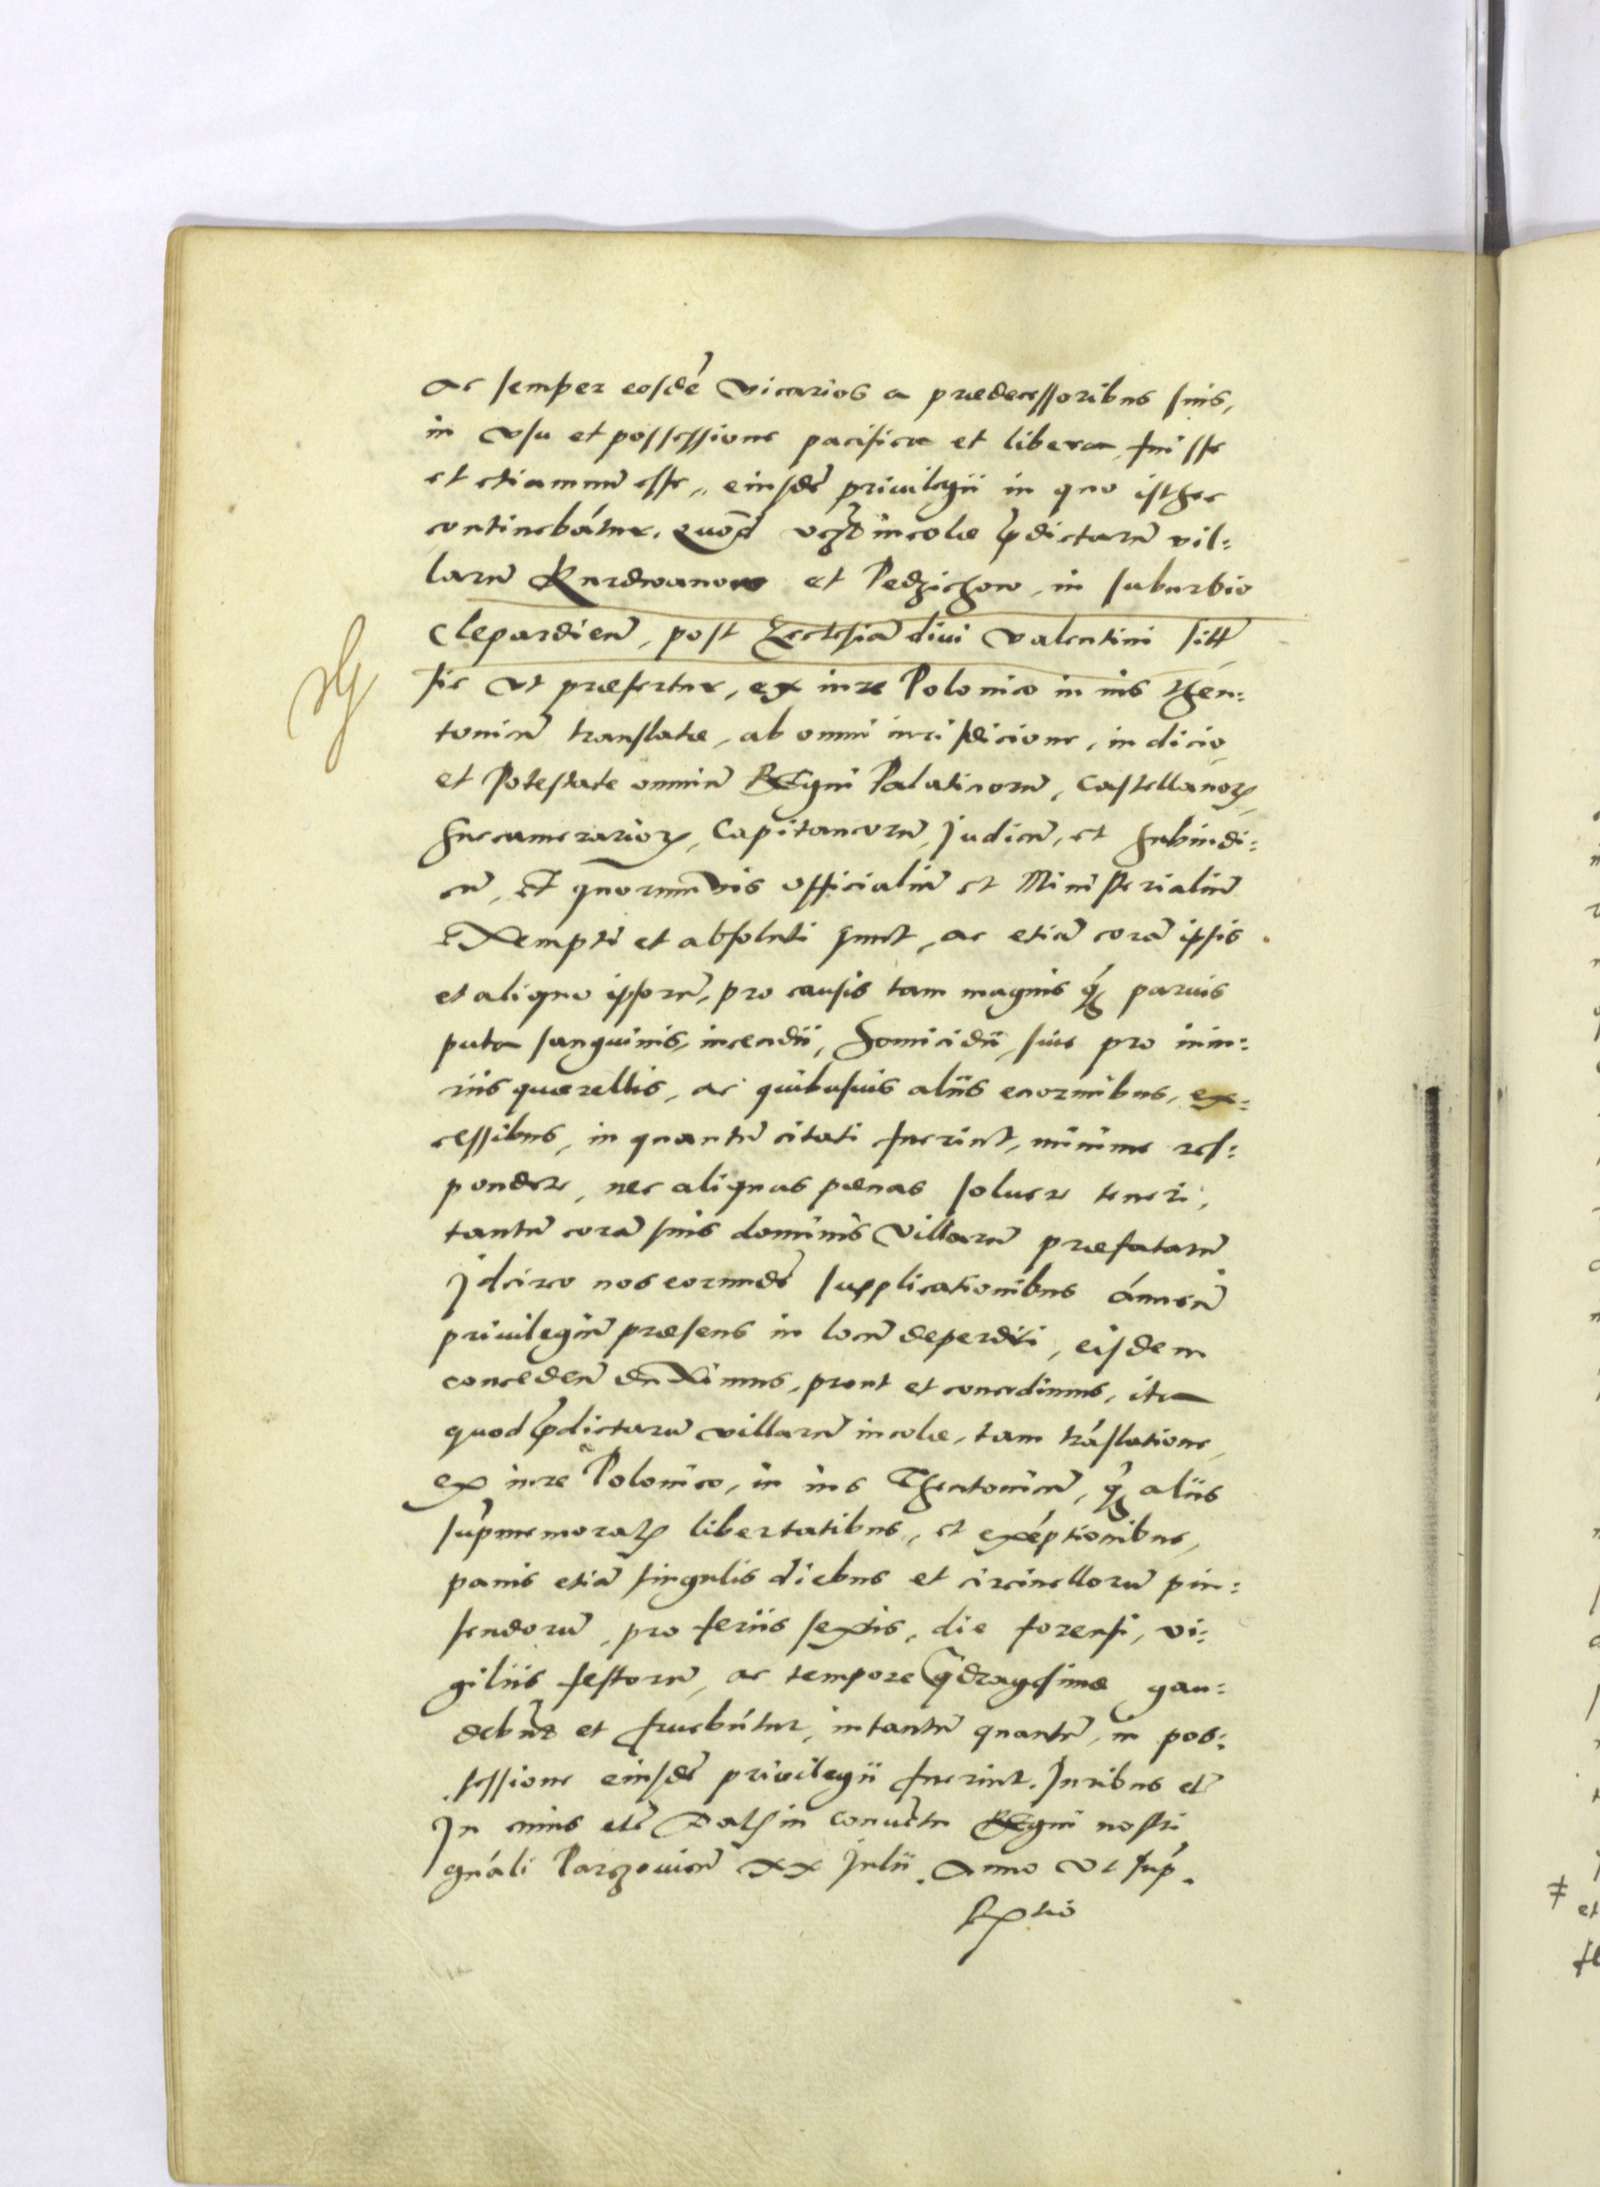 ac semper eosdē vicarios a praedecessoribus suis,
in vsu et possessione pacifica et libera, fuisse
et etiamnū esse,, eiusdē priuilegii in quo isthec
continebātur. Quod incolae p̄dictarū vil:
larū Kurdwanow et Pedzichow, in suburbio
Clepardien̄, post Ecclesiā diui valentini sitt
sic vt praefertur, ex iure Polonico in ius then:
tonicū translatae, ab omni iurisdicione, indicio,
et Potestate omniū REgni Palatinorū, Castellanorꝝ
Succamerariorꝝ, Capitaneorū, Judicū, et Subiudi:
cū, Et quorumuis officialiū et Ministerialiū
EXempti et absoluti sunt, ac etiā corā ipsis
et aliquo ipsorū, pro causis tam magnis q̄ꝫ paruis
puta sanguinis, incendii, homicidii, siue pro iniu:
riis quaerellis, ac quibusuis aliis enormibus, ex:
cessibus, in quantū citati fuerint, minime res:
pondere, nec aliquas paenas soluere teneri,
tantū corā suis dominis villarū praefatarū
Idcirco nos eorundē supplicationibus ānuen̄
priuilegiū praesens in locū deperditi, eisdem
concedend̄ duXimus, prout et concedimus, ita
quod p̄dictarū villarū incolae, tam trāslatione,
ex iure Polonico, in ius Thentonicū, q̄ꝫ aliis
sup̄memoratꝭ libertatibus, et exēptionibus,
panis etiā singulis diebus et circinellorū pin:
sendorū, pro feriis sextis, die forensi, vi:
giliis festorū, ac tempore q̄dragesimae gau:
debūt et fruebūtur, intantū quantū, in pos:
sessione eiusdē priuilegii fuerint. Juribus et̄
In cuius etc̄ Datꝭ in conuētu REgni nostri
gn̄ali Parczouien̄ xx Julii. Anno vt sup̄.